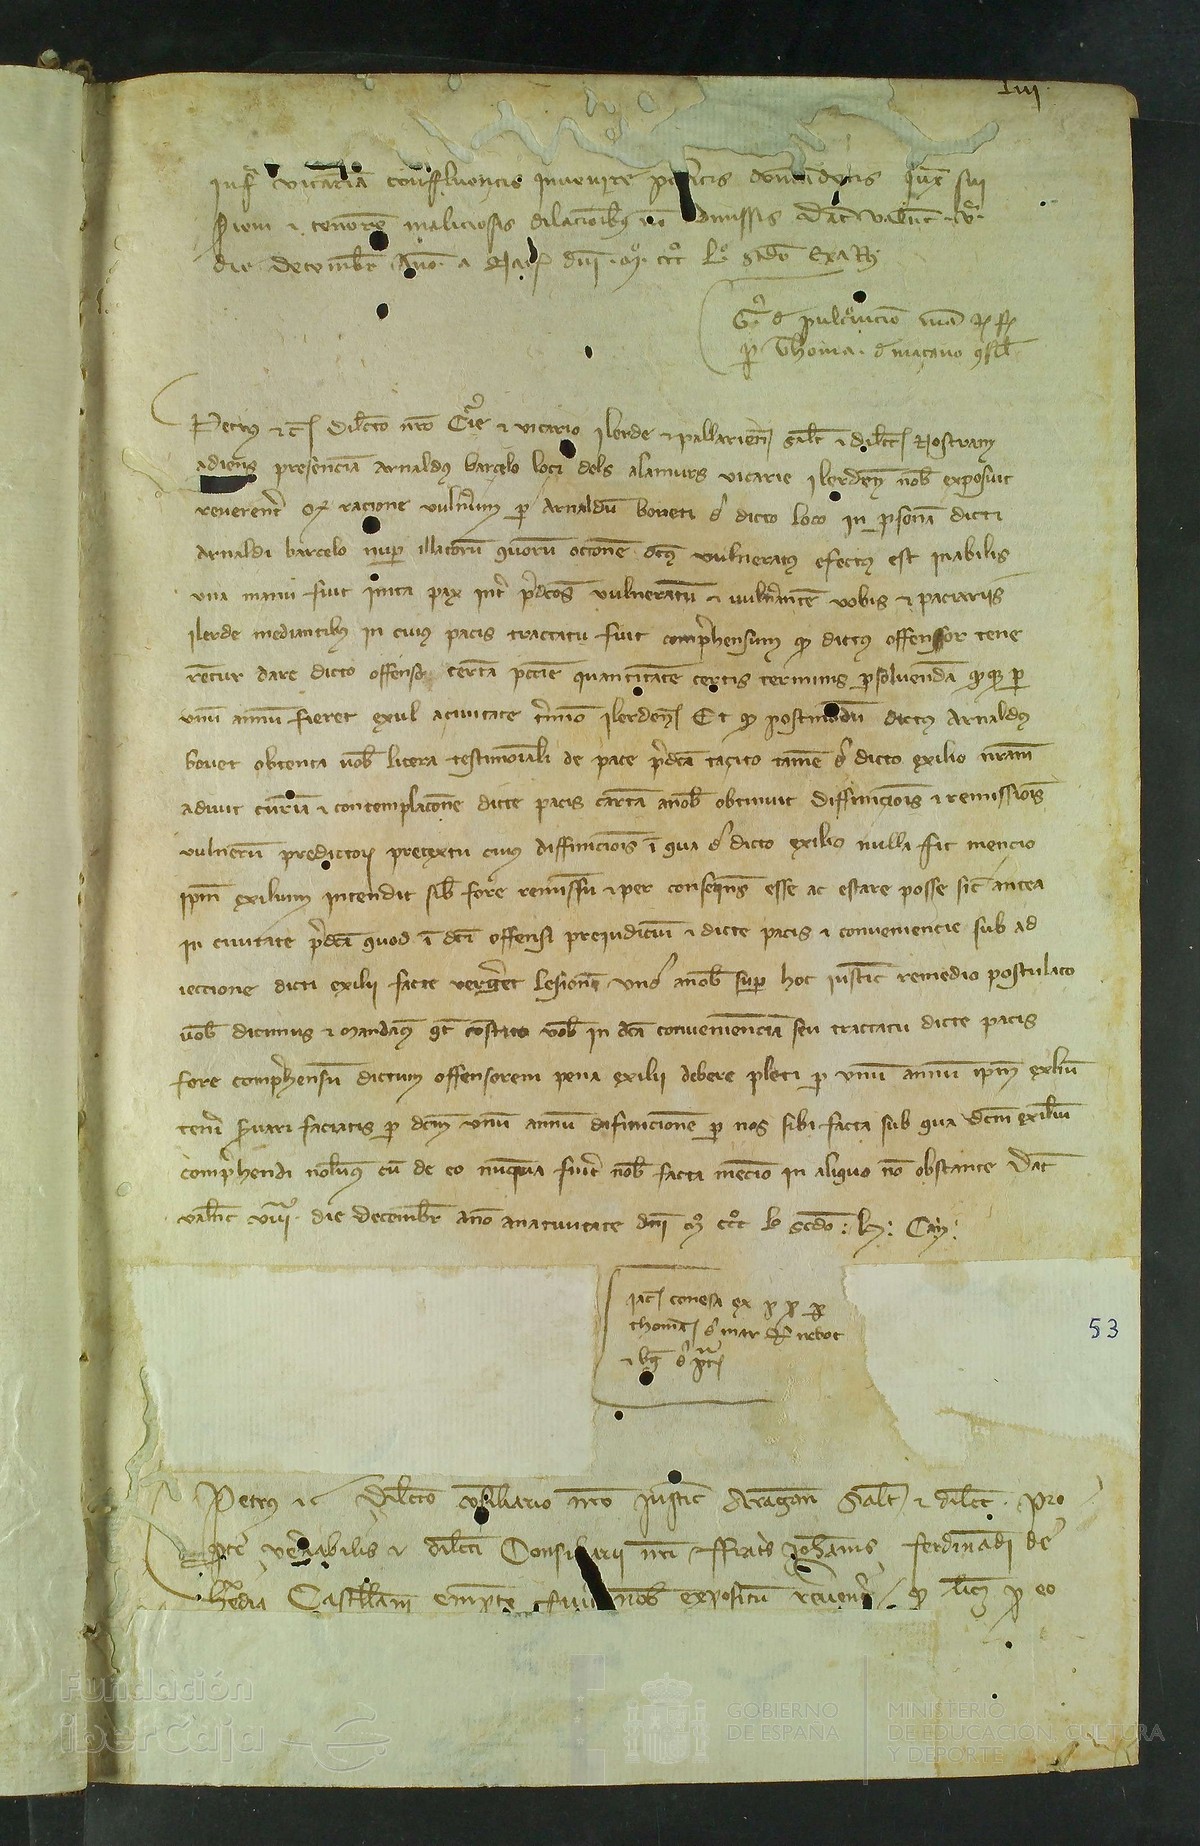 liii
infra vicariam Confluentis invenire poteritis iure sui
et tenore maliciosis dilacionibus non admissis Dat Valencie v
die Decembr Anno a Nat dni mº cccº Lº scdo Exa Ry
per Thoma
Petrus etc Dilecto nro Curie et vicario Ilerde et Pallariensis salt et dilect Nostram
adiens presenciam Arnaldus barcelo loci dels alamurs vicarie Ilerden nob exposuit
reverent qd racione vulnerum p Arnaldum boueti de dicto loco in psonam dicti
Arnaldi barcelo nup illatorum quorum occone dcus vulneratus efectus est inabilis
una manu fuit inita pax int predcos vulneratum et vulnerantem vobis et paciariis
Ilerde mediantibus in cuius pacis tractatu fuit comprehensum qd dictus offensor tene
retur dare dicto offenso certam peccunie quantitatem certis terminis psolvendam et qd p
unum annum fieret exul a civitate et termino Ilerden Et qd postmodum dictus Arnaldus
bovet obtenta a vob litera testimoniali de pace predca tacito tamen de dicto exilio nram
adivit curiam et contemplacone dicte pacis cartam a nob obtinuit diffinicionis et remissionis
vulnerum predictorum pretextu cuius diffinicionis in qua de dicto exilio nulla fit mencio
ipm exilium intendit sib fore remissum et per consequens esse ac estare posse sic antea
in civitate predca quod in dci offensi preiudicium et dicte pacis et conveniencie sub ad
ieccione dicti exilii facte vergeret lesionem Unde a nob sup hoc iustic remedio postulato
vob dicimus et mandamus qt constito vob in dca conveniencia seu tractatu dicte pacis
fore comprehensum dictum offensorem pena exilii debere plecti p unum annum ipm exilium
teneri et servari faciatis p dcm unum annum difinicione p nos sibi facta sub qua dcm exilium
comprehendi nolumus cum de eo nunquam fuerit nob facta mencio in aliquo non obstante Dat
Valencie viiii die Decembr anno a nativitate dni mº cccº L scdo
Iac Conesa ex p
thome de mar
Petrus etc Dilecto consiliario nro Iustic Aragon Salt et dilect Pro
parte venerabilis et dilecti Consiliarii nri ffratis Johannis Ferdinandi de
heredia Castellani empte fuit nob expositum reverent qd licet p eo
53
Fundación
iberCaja
GOBIERNO
DE ESPAÑA
MINISTERIO
DE EDUCACIÓN, CULTURA
Y DEPORTE